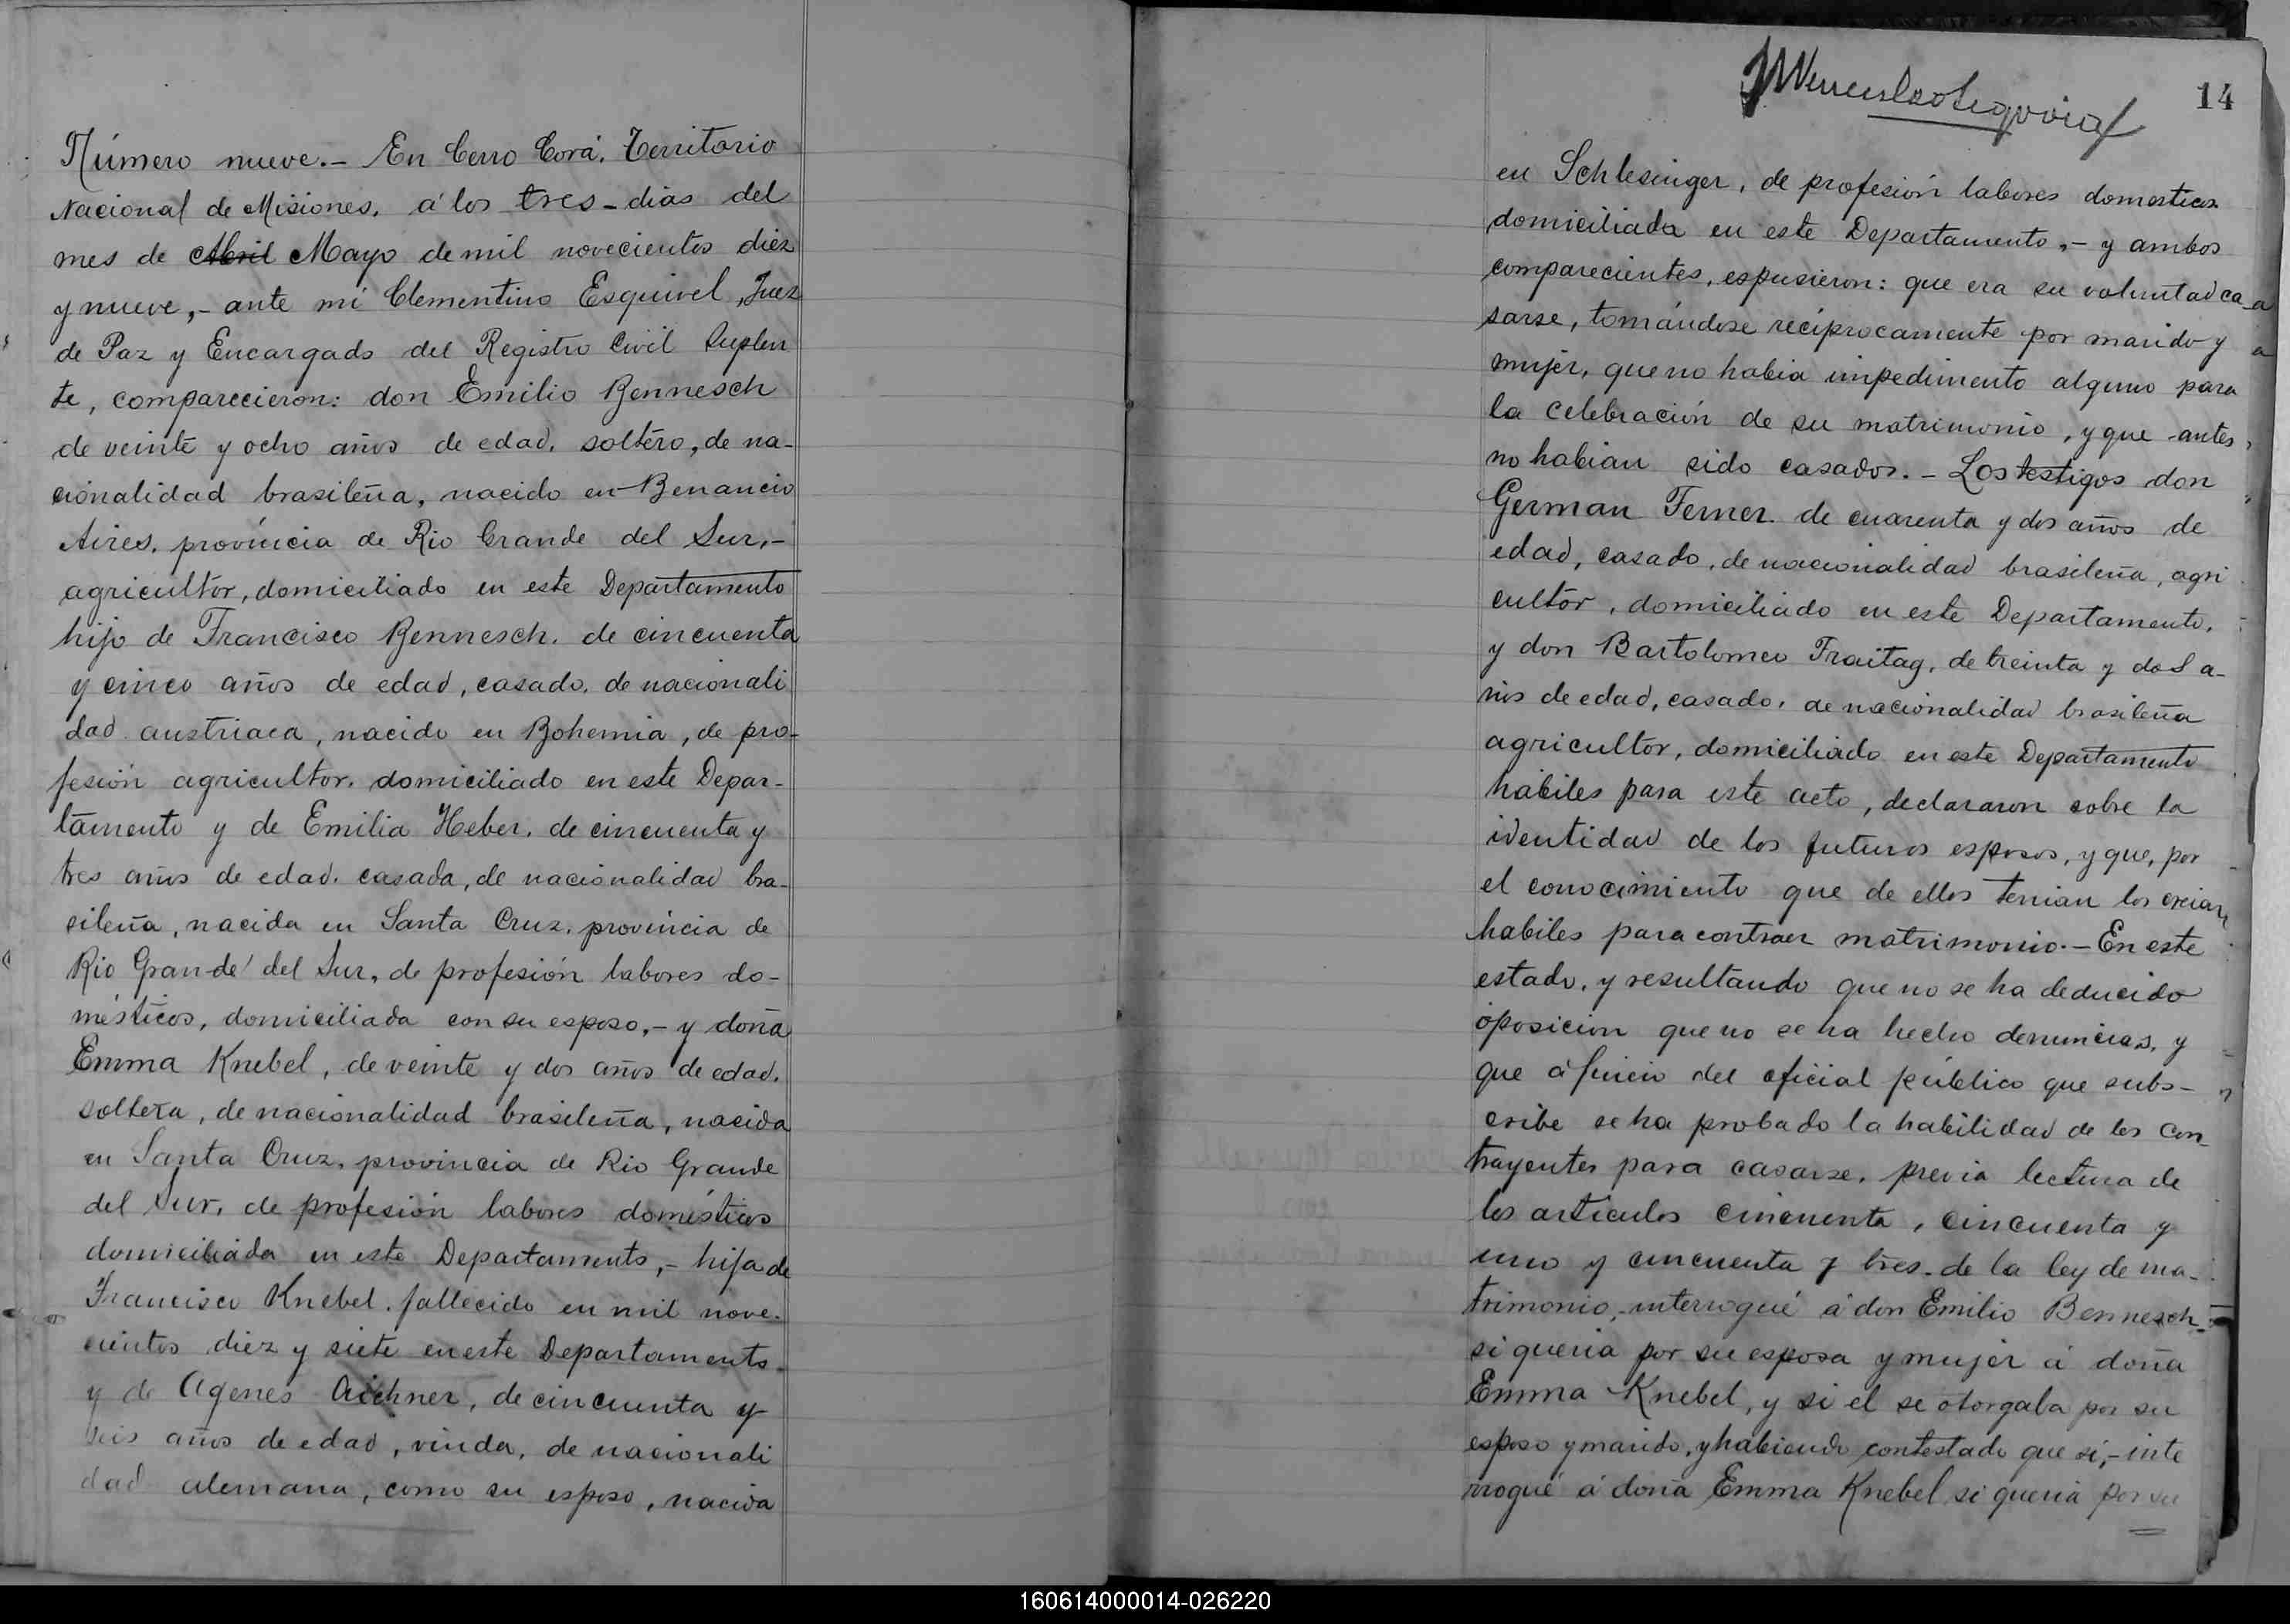 Número nueve.- En Cerro Corá, Territorio
Nacional de Misiones, á los tres - dias del
mes de Abril Mayo de mil novecientos diez
y nueve,- ante mi Clementino Esquivel, Juez
de Paz y Encargado del Registro Civil Suplen
te, comparecieron: don Emilio Bennesch
de veinte y ocho años de edad, soltero, de na-
cionalidad brasileña, nacido en Benancio
Aires, provincia de Rio Grande del Sur,-
agricultor, domiciliado en este Departamento
hijo de Francisco Bennesch, de cincuenta
y cinco años de edad, casado, de nacionali
dad austriaca, nacido en Bohemia, de pro-
fesión agricultor, domiciliado en este Depar-
tamento y de Emilia Heber, de cincuenta y
tres años de edad, casada, de nacionalidad bra-
sileña, nacida en Santa Cruz, provincia de
Rio Grande del Sur, de profesión labores do-
mésticos, domiciliada con su esposo,- y doña
Emma Knebel, de veinte y dos años de edad,
soltera, de nacionalidad brasileña, nacida
en Santa Cruz, provincia de Rio Grande
del Sur, de profesión labores domésticos
domiciliada en este Departamento,- hija de
Francisco Knebel, fallecido en mil nove-
cientos diez y siete en este Departamento
y de Agenes Aichner, de cincuenta y
seis años de edad, viuda, de nacionali
dad alemana, como su esposo, nacida
14
en Schlesinger, de profesión labores domesticos
domiciliada en este Departamento,- y ambos
comparecientes, espusieron: que era su voluntad ca
sarse, tomándose recíprocamente por marido y
mujer, que no habia impedimento alguno para
la celebración de su matrimonio, y que antes
no habian sido casados.- Los testigos don
German Ferner, de cuarenta y dos años de
edad, casado, de nacionalidad brasileña, agri
cultor, domiciliado en este Departamento,
y don Bartolomeo Fraitag, de treinta y dos a-
ños de edad, casado, de nacionalidad brasileña
agricultor, domiciliado en este Departamento
habiles para este acto, declararon sobre la
identidad de los futuros esposos, y que, por
el conocimiento que de ellos tenian los creian
habiles para contraer matrimonio.- En este
estado, y resultando que no se ha deducido
oposicion que no se ha hecho denuncias, y
que á juicio del oficial público que subs-
cribe se ha probado la habilidad de los con-
trayentes para casarse, previa lectura de
los articulos cincuenta, cincuenta y
uno y cincuenta y tres de la ley de ma-
trimonio, interrogué á don Emilio Bennesch
si queria por su esposa y mujer á doña
Emma Knebel, y si el se otorgaba por su
esposo y marido, y habiendo contestado que si,- inte
rrogué á doña Emma Knebel si queria por su
160614000014-026220